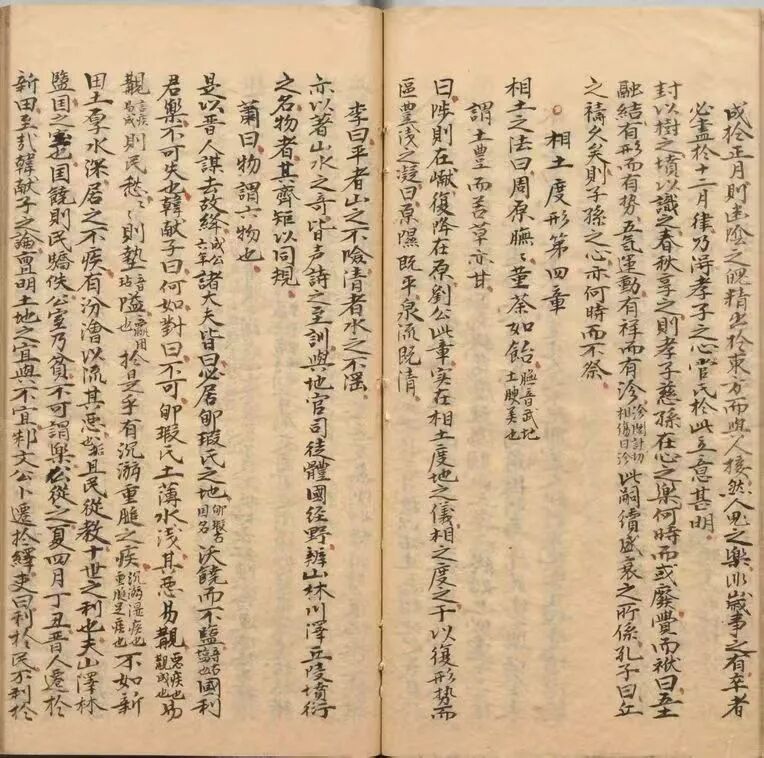 成於正月則幽陰之魄精出於東方而與人接然人鬼之樂以歲事之有卒者
必盡於十二月律乃得孝子之心管氏於此立意甚明
封以樹之墳以識之春秋享之則孝子慈孫在心之樂何時而或廢費而袱曰五土
融結有形而有勢五氣運動有祥而有沴沴閭計切相傷曰沴此嗣續盛衰之所係孔子曰丘
之禱久矣則子孫之心亦何時而不祭
相土度形第四章
相土之法曰周原膴〻堇荼如飴膴音武地土腴美也
謂土豊而苦草亦甘
曰陟則在巘復降在原劉公此章实在相土度地之儀相之度之于以復形勢而
區豊浅之凝曰原隰既平泉流既清
李曰平者山之不險清者水之不滛
亦以著山水之奇皆声詩之至訓與地官司徒體國經野辨山林川澤丘陵墳衍
之名物者其齊矩以同規
蕭曰物謂六物也
是以晋人謀去故絳成公六年諸大夫皆曰必居郇瑕氏之地郇瑕古国名沃饒而不盬國利
君樂不可失也韓献子曰何如對曰不可郇瑕氏土薄水浅其惡易覯惡疾也覯成也易
覯言疾易成則民愁〻則墊隘於是乎有沉溺重膇之疾沉溺湿疾也重膇足瘇也不如新
田土厚水深居之不疾有汾澮以流其惡且民從教十世之利也夫山澤林
盬国之宝也国饒則民驕佚公室乃貧不可謂樂公從之夏四月丁丑晋人遷於
新田至於韓献子之論而且明土地之宜與不宜邾文公卜遷於繹史曰利於民不利於